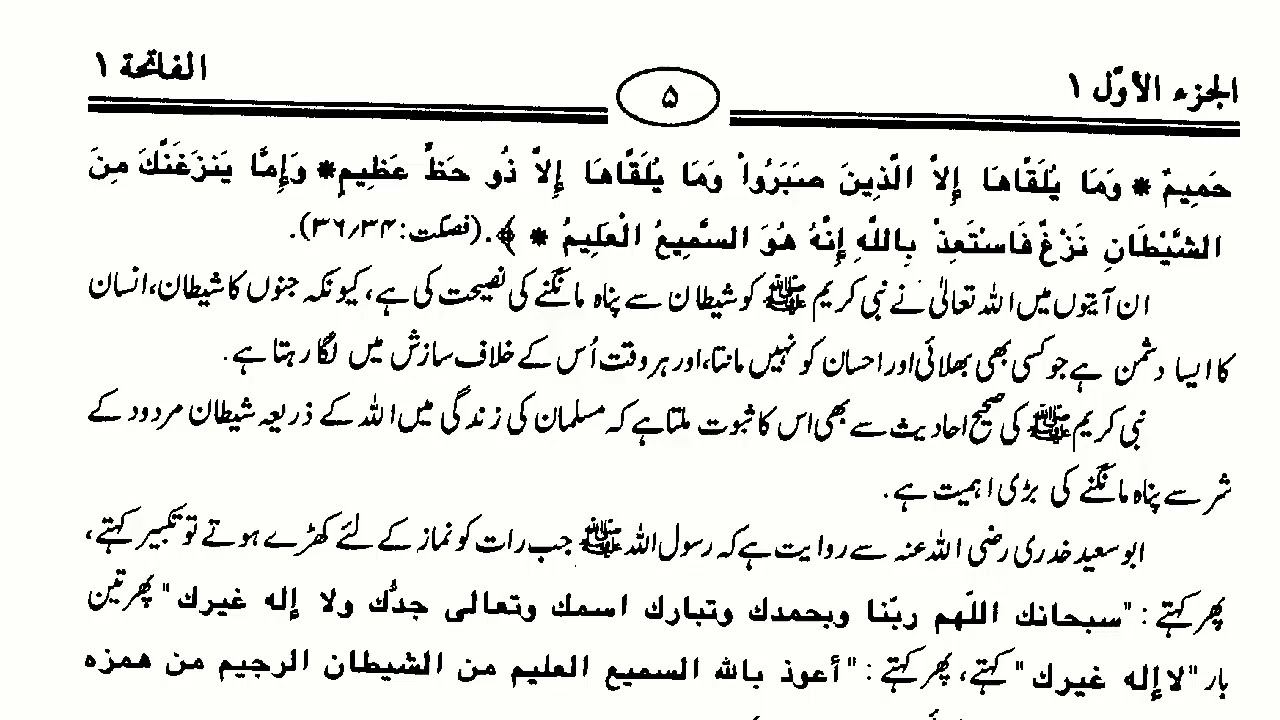 الجزء الأوّل ١
۵
الفاتحة ١
حَمِيمٌ * وَمَا يُلَقَّاهَا إِلاَّ الَّذِينَ صَبَرُواْ وَمَا يُلَقَّاهَا إِلاَّ ذُو حَظٍّ عَظِيمٍ* وَإِمَّا يَنزَغَنَّكَ مِنَ
الشَّيْطَانِ نَزْغٌ فَاسْتَعِذْ بِاللَّهِ إِنَّهُ هُوَ السَّمِيعُ الْعَلِيمُ * ﴾.(فصلت:۳۶/۳۴).
ان آیتوں میں اللہ تعالیٰ نے نبی کریم ﷺ کو شیطان سے پناہ مانگنے کی نصیحت کی ہے، کیونکہ جنوں کا شیطان، انسان
کا ایسا دشمن ہے جو کسی بھی بھلائی اور احسان کو نہیں مانتا، اور ہر وقت اُس کے خلاف سازش میں لگا رہتا ہے.
نبی کریم ﷺ کی صحیح احادیث سے بھی اس کا ثبوت ملتا ہے کہ مسلمان کی زندگی میں اللہ کے ذریعہ شیطان مردود کے
شر سے پناہ مانگنے کی بڑی اہمیت ہے.
ابو سعید خدری رضی اللہ عنہ سے روایت ہے کہ رسول اللہ ﷺ جب رات کو نماز کے لئے کھڑے ہوتے تو تکبیر کہتے،
پھر کہتے: "سبحانك اللّهم ربّنا وبحمدك وتبارك اسمك وتعالى جدُّك ولا إله غيرك" پھر تین
بار "لا إله غيرك" کہتے، پھر کہتے: "أعوذ بالله السميع العليم من الشيطان الرجيم من همزه